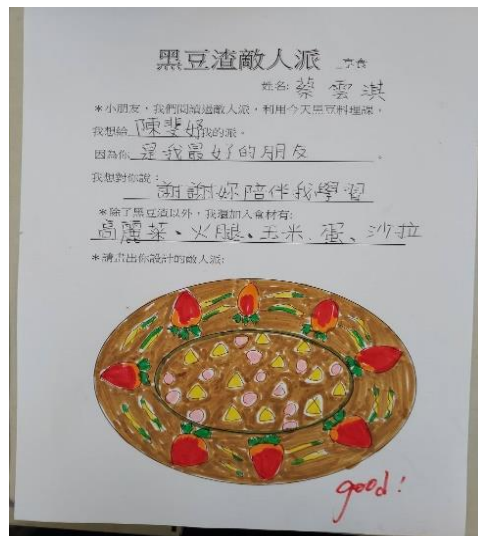 黑豆渣敵人派 享食
姓名: 蔡雲淇
*小朋友，我們閱讀過敵人派，利用今天黑豆料理課，
我想給 陳斐妤 我的派。
因為你 是我最好的朋友 。
我想對你說：
謝謝妳陪伴我學習
*除了黑豆渣以外，我還加入食材有:
高麗菜、火腿、玉米、蛋、沙拉
*請畫出你設計的敵人派:
good!